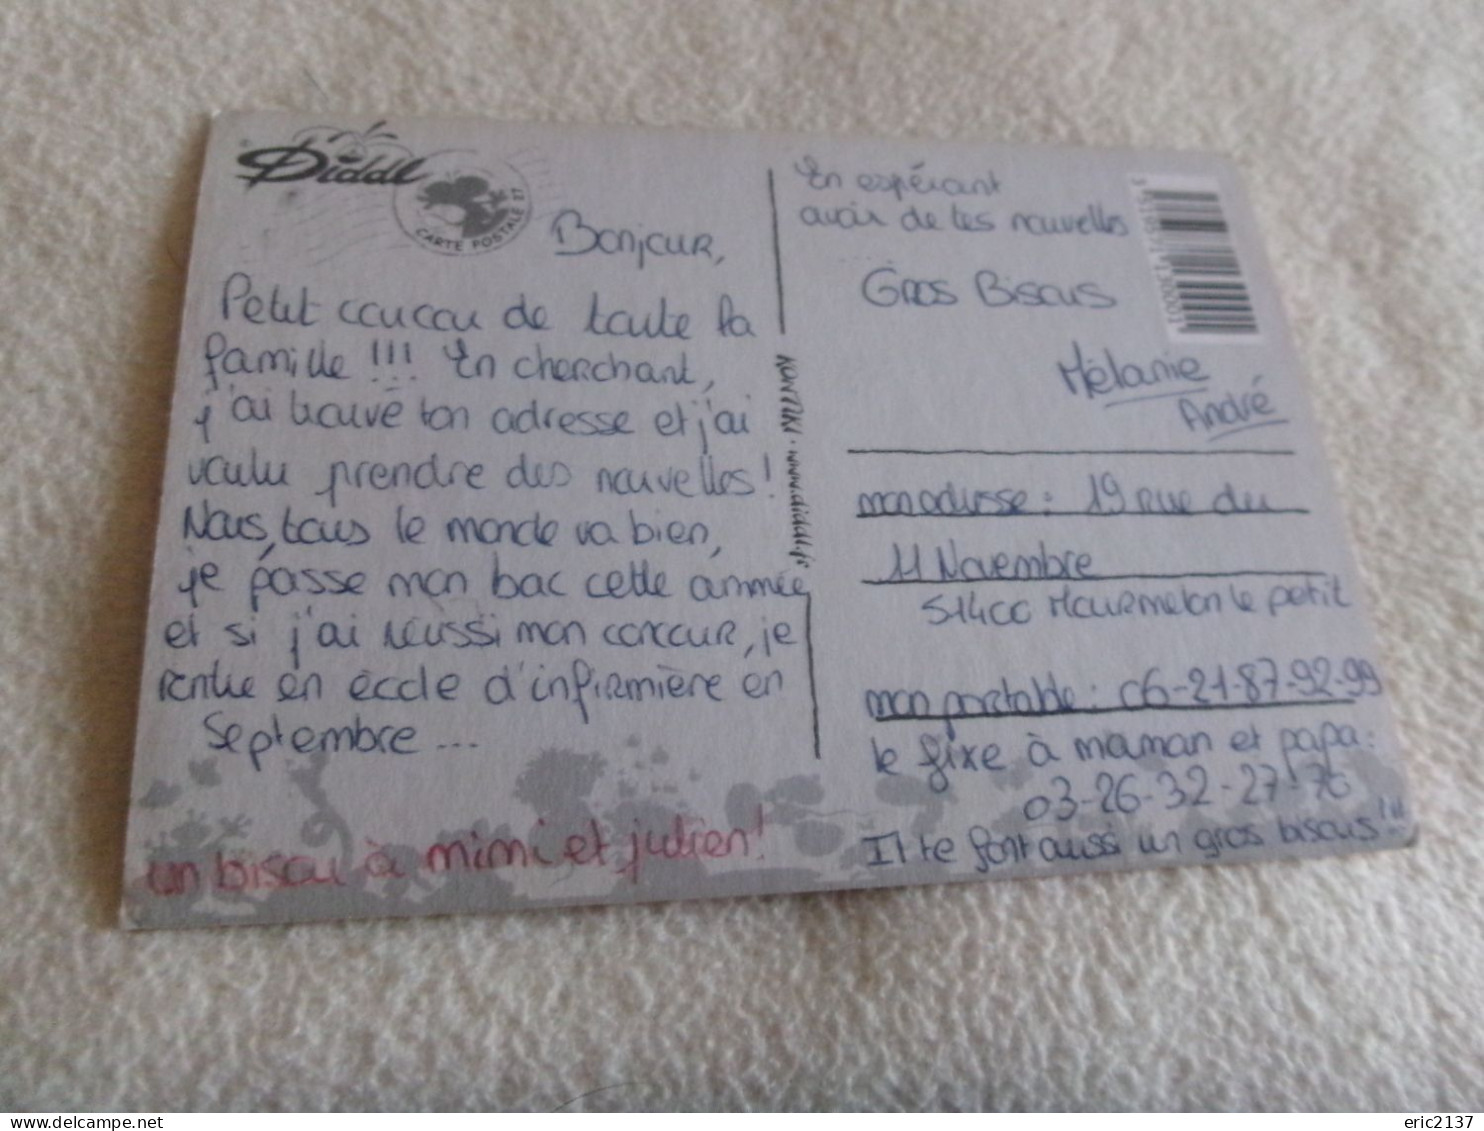 Diddl
CARTE POSTALE 27
Bonjour,
Petit coucou de toute la
famille !!! En cherchant,
j'ai trouvé ton adresse et j'ai
voulu prendre des nouvelles!
Nous, tous le monde va bien,
je passe mon bac cette année
et si j'ai réussi mon concour, je
rentre en école d'infirmière en
Septembre ...
un bisou à mimi et julien!
www.diddl.fr
En espérant
avoir de tes nouvelles
Gros Bisous
Mélanie
André
mon adresse : 19 rue du
11 Novembre
51400 Mourmelon le petit
mon portable : 06-21-87-92-99
le fixe à maman et papa :
03-26-32-27-76
Il te font aussi un gros bisous !!!
eric2137